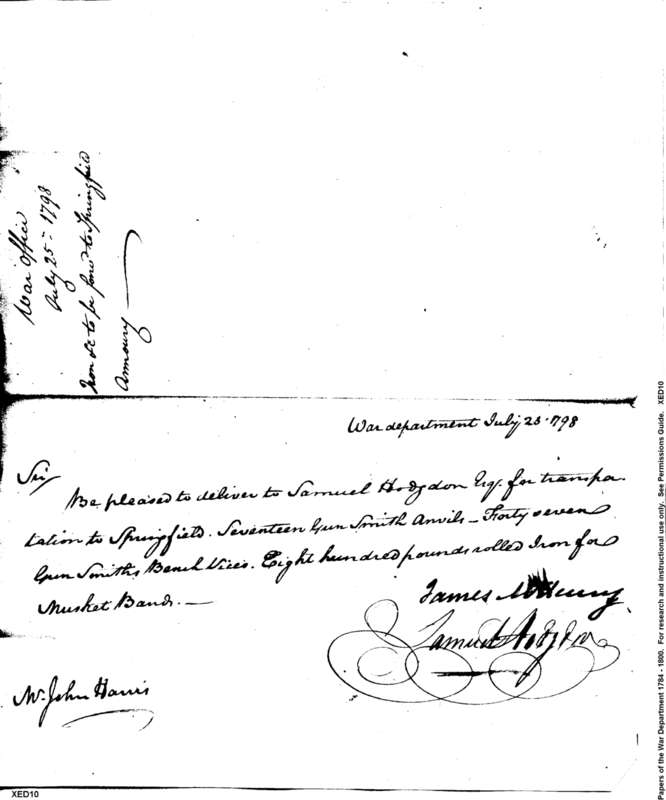 War Office
July 25th 1798
Iron &c to be forwd to Springfield
Armoury
War department July 25 1798
Sir
Be pleased to deliver to Samuel Hodgdon Esq. for transpo-
tation to Springfield. Seventeen Gun Smith Anvils - Forty seven
Gun Smiths Bench Vices. Eight hundred pounds rolled Iron for
Musket Bands. —
James McHenry
Samuel Hodgdon
Mr. John Harris
XED10
Papers of the War Department 1784 - 1800. For research and instructional use only. See Permissions Guide. XED10